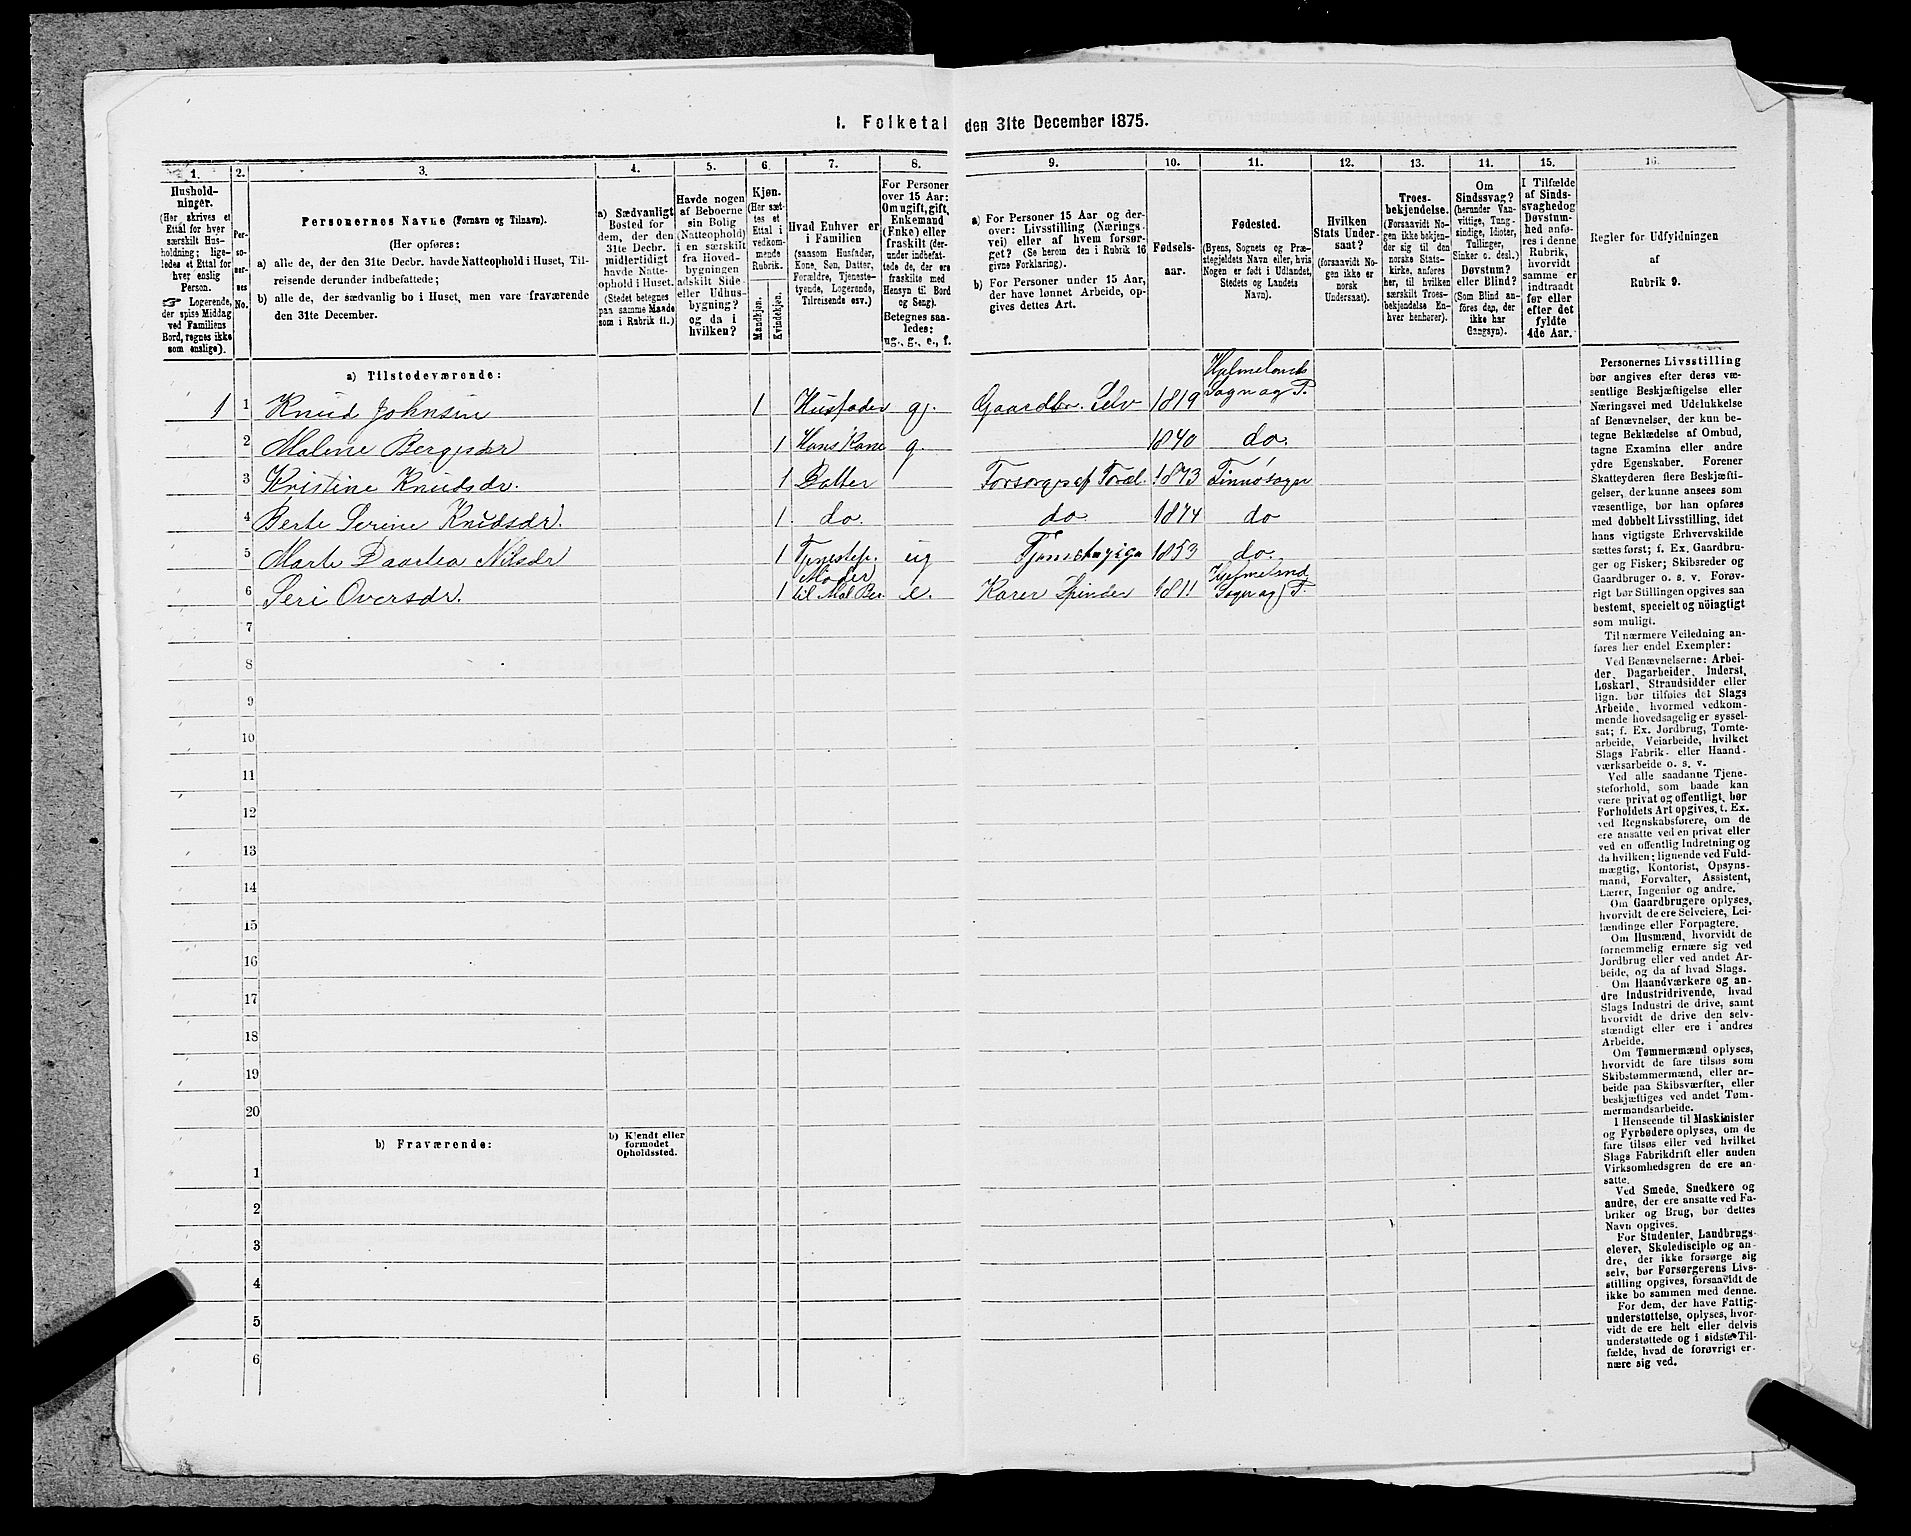 I. Folketal den 31te December 1875.
1. 2. 3. 4. 5. 6. 7. 8. 9. 10. 11. 12. 13. 14. 15. 16.
Hushold-
ninger.
(Her skrives et
Ettal for hver
særskilt Hus-
holdning; lige-
ledes et Ettal for
hver enslig
Person.
☞ Logerende,
der spise Middag
ved Familiens
Bord, regnes ikke
som enslige).
Per-
so-
ner-
nes
No.
Personernes Navne (Fornavn og Tilnavn).
(Her opføres:
a) alle de, der den 31te Decbr. havde Natteophold i Huset, Til-
reisende derunder indbefattede;
b) alle de, der sædvanlig bo i Huset, men vare fraværende
den 31te December.
a) Sædvanligt
Bosted for
dem, der den
31te Decbr.
midlertidigt
havde Natte-
ophold i Huset.
(Stedet betegnes
paa samme Maade
som i Rubrik 11.)
Havde nogen
af Beboerne
sin Bolig
(Natteophold)
i en særskilt
fra Hoved-
bygningen
adskilt Side-
eller Udhus-
bygning?
og da i
hvilken?
Kjøn.
(Her sæt-
tes et
Ettal i
vedkom-
mende
Rubrik.
Mandkjøn.
Kvindekjøn.
Hvad Enhver er
i Familien
(saasom Husfader,
Kone, Søn, Datter,
Forældre, Tjeneste-
tyende, Logerende,
Tilreisende osv.)
For Personer
over 15 Aar:
Om ugift, gift,
Enkemand
(Enke) eller
fraskilt (der-
under indbefat-
tede de, der ere
fraskilte med
Hensyn til Bord
og Seng).
Betegnes saa-
ledes:
ug., g., e., f.
a) For Personer 15 Aar og der-
over: Livsstilling (Nærings-
vei) eller af hvem forsør-
get? (Se herom den i Rubrik 16
givne Forklaring).
b) For Personer under 15 Aar,
der have lønnet Arbeide, op-
gives dettes Art.
Fødsels-
aar.
Fødested.
(Byens, Sognets og Præ-
stegjeldets Navn eller, hvis
Nogen er født i Udlandet,
Stedets og Landets
Navn).
Hvilken
Stats Under-
saat?
(forsaavidt No-
gen ikke er
norsk
Undersaat).
Troes-
bekjendelse.
(Forsaavidt No-
gen ikke bekjen-
der sig til den
norske Stats-
kirke, anføres
her, til hvilken
særskilt Troes-
bekjendelse En-
hver henhører).
Om
Sindssvag?
(herunder Van-
vittige, Tung-
sindige, Idioter,
Tullinger,
Sinker o. desl.)
Døvstum?
eller Blind?
(Som Blind an-
føres den, der
ikke har
Gangsyn).
I Tilfælde
af Sinds-
svaghed og
Døvstum-
hed anfø-
res i denne
Rubrik,
hvorvidt
samme er
indtraadt
før eller
efter det
fyldte
4de Aar.
Regler for Udfyldningen
af
Rubrik 9.
a) Tilstedeværende:
1 1 Knud Johnsen 1 Husfader g. Gaardbr. Selv 1819 Hjelmelands
Sogn og P.
2 Malene Bergesdr 1 Hans Kone g. 1840 do.
3 Kristine Knudsdr. 1 Datter Forsorges af Foræl. 1873 Finnøsogn
4 Berte Serine Knudsdr. 1. do. do. 1874 do
5 Marte Daartea Nilsdr 1 Tjenestep. ug Tjenestepige 1853 do.
6 Seri Oversdr. 1 Moder
til Mal Ber. e. Karer Spinder 1811 Hjelmeland
Sogn og P.
7
8
9
10
11
12
13
14
15
16
17
18
19
20
b) Fraværende:
b) Kjendt eller
formodet
Opholdssted.
1
2
3
4
5
6
Personernes Livsstilling
bør angives efter deres væ-
sentlige Beskjæftigelse eller
Næringsvei med Udelukkelse
af Benævnelser, der kun be-
tegne Beklædelse af Ombud,
tagne Examina eller andre
ydre Egenskaber. Forener
Skatteyderen flere Beskjæfti-
gelser, der kunne ansees som
væsentlige, bør han opføres
med dobbelt Livsstilling, idet
hans vigtigste Erhvervskilde
sættes først; f. Ex. Gaardbru-
ger og Fisker; Skibsreder og
Gaardbruger o. s. v. Forøv-
rigt bør Stillingen opgives saa
bestemt, specielt og nöiagtigt
som muligt.
Til nærmere Veiledning an-
føres her endel Exempler:
Ved Benævnelserne: Arbei-
der, Dagarbeider, Inderst,
Løskarl, Strandsidder eller
lign. bør tilføies det Slags
Arbeide, hvormed vedkom-
mende hovedsagelig er syssel-
sat; f. Ex. Jordbrug, Tomte-
arbeide, Veiarbeide, hvilket
Slags Fabrik- eller Haand-
værksarbeide o. s. v.
Ved alle saadanne Tjene-
steforhold, som baade kan
være privat og offentligt, bør
Forholdets Art opgives, t. Ex.
ved Regnskabsførere, om de
ere ansatte ved en privat eller
ved en offentlig Indretning og
da hvilken; lignende ved Fuld-
mægtig, Kontorist, Opsyns-
mand, Forvalter, Assistent,
Lærer, Ingeniør og andre.
Om Gaardbrugere oplyses,
hvorvidt de ere Selveiere, Lei-
lændinge eller Forpagtere.
Om Husmænd, hvorvidt de
fornemmelig ernære sig ved
Jordbrug eller ved andet Ar-
beide, og da af hvad Slags.
Om Haandværkere og an-
dre Industridrivende, hvad
Slags Industri de drive, samt
hvorvidt de drive den selv-
stændigt eller ere i andres
Arbeide.
Om Tømmermænd oplyses,
hvorvidt de fare tilsøs som
Skibstømmermænd, eller ar-
beide paa Skibsværfter, eller
beskjæftiges ved andet Tøm-
mermandsarbeide.
I Henseende til Maskinister
og Fyrbødere oplyses, om de
fare tilsøs eller ved hvilket
Slags Fabrikdrift eller anden
Virksomhedsgren de ere an-
satte.
Ved Smede, Snedkere og
andre, der ere ansatte ved Fa-
briker og Brug, bør dettes
Navn opgives.
For Studenter, Landbrugs-
elever, Skoledisciple og an-
dre, der ikke forsørge sig
selv, bør Forsørgerens Livs-
stilling opgives, forsaavidt de
ikke bo sammen med denne.
For dem, der have Fattig-
understøttelse, oplyses, hvor-
vidt de ere helt eller delvis
understøttede og i sidste Til-
fælde, hvad de forøvrigt er-
nære sig ved.